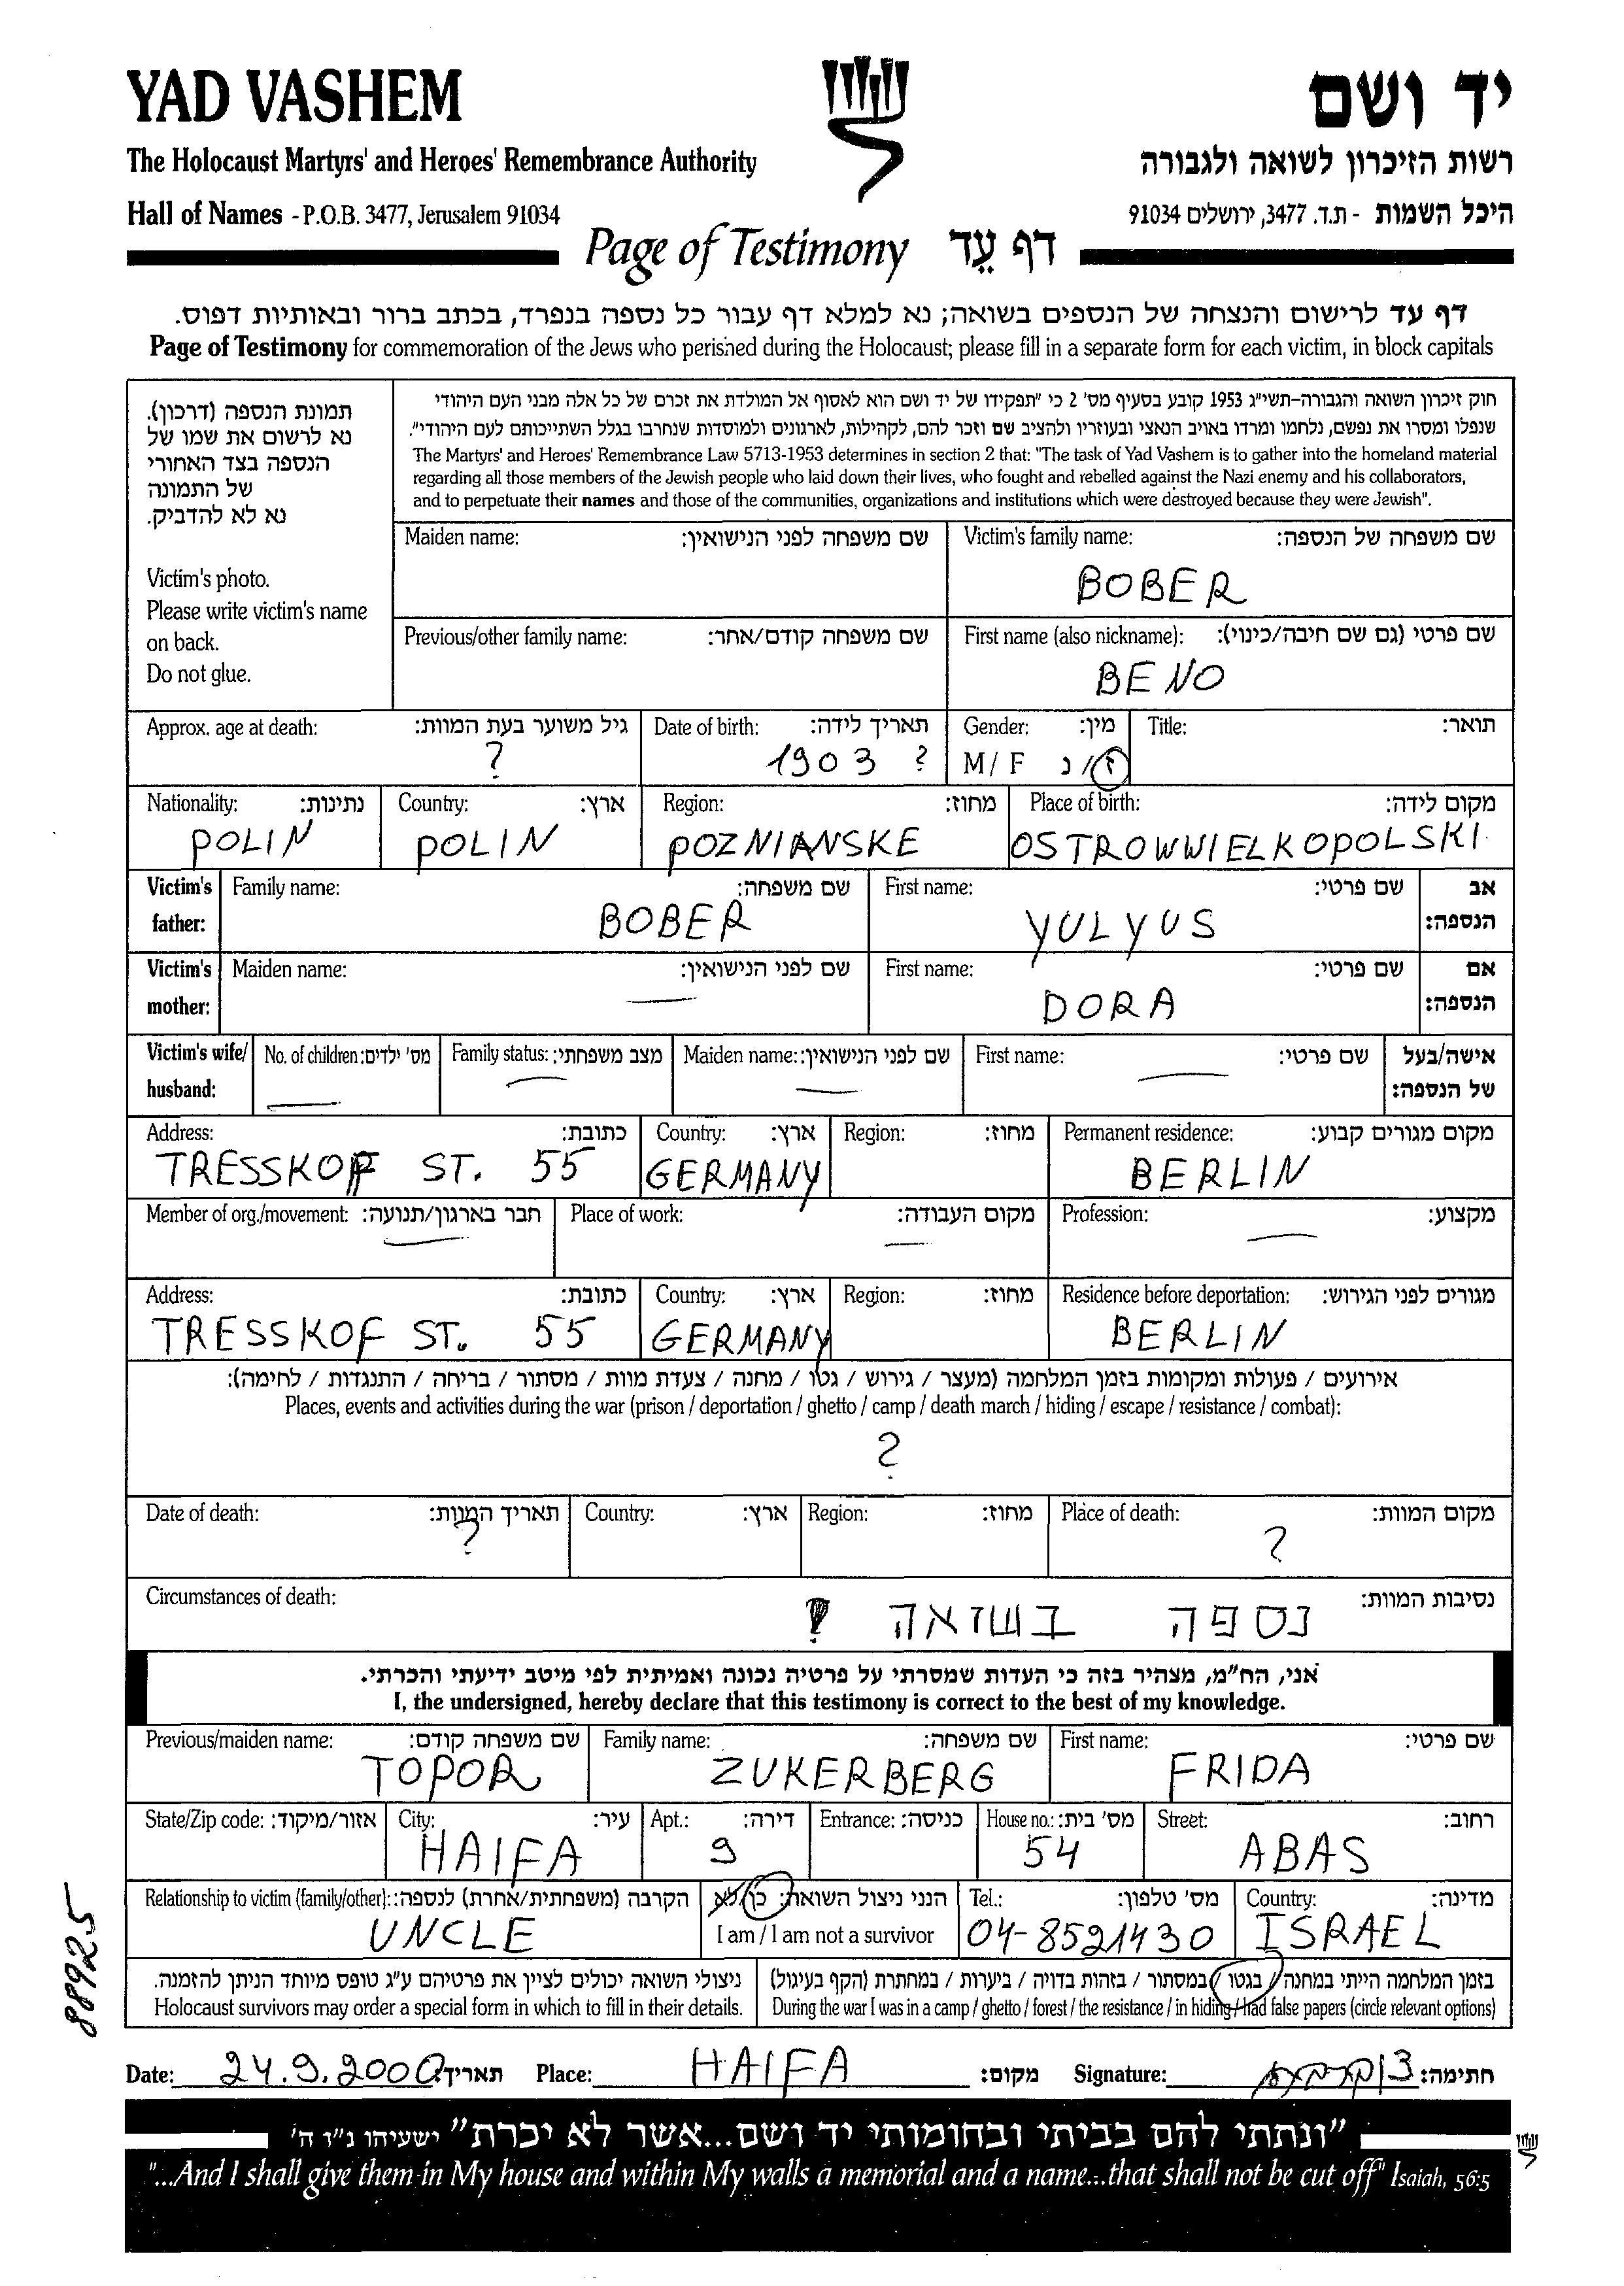 YAD VASHEM
יד ושם
The Holocaust Martyrs' and Heroes' Remembrance Authority
רשות הזיכרון לשואה ולגבורה
Hall of Names - P.O.B. 3477, Jerusalem 91034
היכל השמות - ת.ד. 3477, ירושלים 91034
Page of Testimony דף עֵד
דף עד לרישום והנצחה של הנספים בשואה; נא למלא דף עבור כל נספה בנפרד, בכתב ברור ובאותיות דפוס.
Page of Testimony for commemoration of the Jews who perished during the Holocaust; please fill in a separate form for each victim, in block capitals
תמונת הנספה (דרכון).
נא לרשום את שמו של
הנספה בצד האחורי
של התמונה
נא לא להדביק.
Victim's photo.
Please write victim's name
on back.
Do not glue.
חוק זיכרון השואה והגבורה–תשי"ג 1953 קובע בסעיף מס' 2 כי "תפקידו של יד ושם הוא לאסוף אל המולדת את זכרם של כל אלה מבני העם היהודי
שנפלו ומסרו את נפשם, נלחמו ומרדו באויב הנאצי ובעוזריו ולהציב שם וזכר להם, לקהילות, לארגונים ולמוסדות שנחרבו בגלל השתייכותם לעם היהודי".
The Martyrs' and Heroes' Remembrance Law 5713-1953 determines in section 2 that: "The task of Yad Vashem is to gather into the homeland material
regarding all those members of the Jewish people who laid down their lives, who fought and rebelled against the Nazi enemy and his collaborators,
and to perpetuate their names and those of the communities, organizations and institutions which were destroyed because they were Jewish".
Maiden name: שם משפחה לפני הנישואין:
Victim's family name: שם משפחה של הנספה:
BOBER
Previous/other family name: שם משפחה קודם/אחר:
First name (also nickname): שם פרטי (גם שם חיבה/כינוי):
BENO
Approx. age at death: גיל משוער בעת המוות:
?
Date of birth: תאריך לידה:
1903 ?
Gender: מין:
M / F ז / נ
Title: תואר:
Nationality: נתינות:
POLIN
Country: ארץ:
POLIN
Region: מחוז:
POZNIANSKE
Place of birth: מקום לידה:
OSTROWWIELKOPOLSKI
Victim's father: Family name: שם משפחה:
BOBER
First name: שם פרטי:
YULYUS
אב הנספה:
Victim's mother: Maiden name: שם לפני הנישואין:
First name: שם פרטי:
DORA
אם הנספה:
Victim's wife/ husband: No. of children: מס' ילדים:
Family status: מצב משפחתי:
Maiden name: שם לפני הנישואין:
First name: שם פרטי:
אישה/בעל של הנספה:
Address: כתובת:
TRESSKOFF ST. 55
Country: ארץ:
GERMANY
Region: מחוז:
Permanent residence: מקום מגורים קבוע:
BERLIN
Member of org./movement: חבר בארגון/תנועה:
Place of work: מקום העבודה:
Profession: מקצוע:
Address: כתובת:
TRESSKOF ST. 55
Country: ארץ:
GERMANY
Region: מחוז:
Residence before deportation: מגורים לפני הגירוש:
BERLIN
אירועים / פעולות ומקומות בזמן המלחמה (מעצר / גירוש / גטו / מחנה / צעדת מוות / מסתור / בריחה / התנגדות / לחימה):
Places, events and activities during the war (prison / deportation / ghetto / camp / death march / hiding / escape / resistance / combat):
?
Date of death: תאריך המוות:
?
Country: ארץ:
Region: מחוז:
Place of death: מקום המוות:
?
Circumstances of death: נסיבות המוות:
נספה בשואה
אני, הח"מ, מצהיר בזה כי העדות שמסרתי על פרטיה נכונה ואמיתית לפי מיטב ידיעתי והכרתי.
I, the undersigned, hereby declare that this testimony is correct to the best of my knowledge.
Previous/maiden name: שם משפחה קודם:
TOPOR
Family name: שם משפחה:
ZUKERBERG
First name: שם פרטי:
FRIDA
State/Zip code: אזור/מיקוד:
City: עיר:
HAIFA
Apt.: דירה:
9
Entrance: כניסה:
House no.: מס' בית:
54
Street: רחוב:
ABAS
Relationship to victim (family/other): הקרבה (משפחתית/אחרת) לנספה:
UNCLE
הנני ניצול השואה: כן / לא
I am / I am not a survivor
Tel.: מס' טלפון:
04-8521430
Country: מדינה:
ISRAEL
ניצולי השואה יכולים לציין את פרטיהם ע"ג טופס מיוחד הניתן להזמנה.
Holocaust survivors may order a special form in which to fill in their details.
בזמן המלחמה הייתי במחנה / בגטו / במסתור / בזהות בדויה / ביערות / במחתרת (הקף בעיגול)
During the war I was in a camp / ghetto / forest / the resistance / in hiding / had false papers (circle relevant options)
88925
Date: 24.9.2000 תאריך:
Place: HAIFA מקום:
Signature: חתימה:
"ונתתי להם בביתי ובחומותי יד ושם...אשר לא יכרת" ישעיהו נ"ו ה'
"...And I shall give them in My house and within My walls a memorial and a name...that shall not be cut off" Isaiah, 56:5